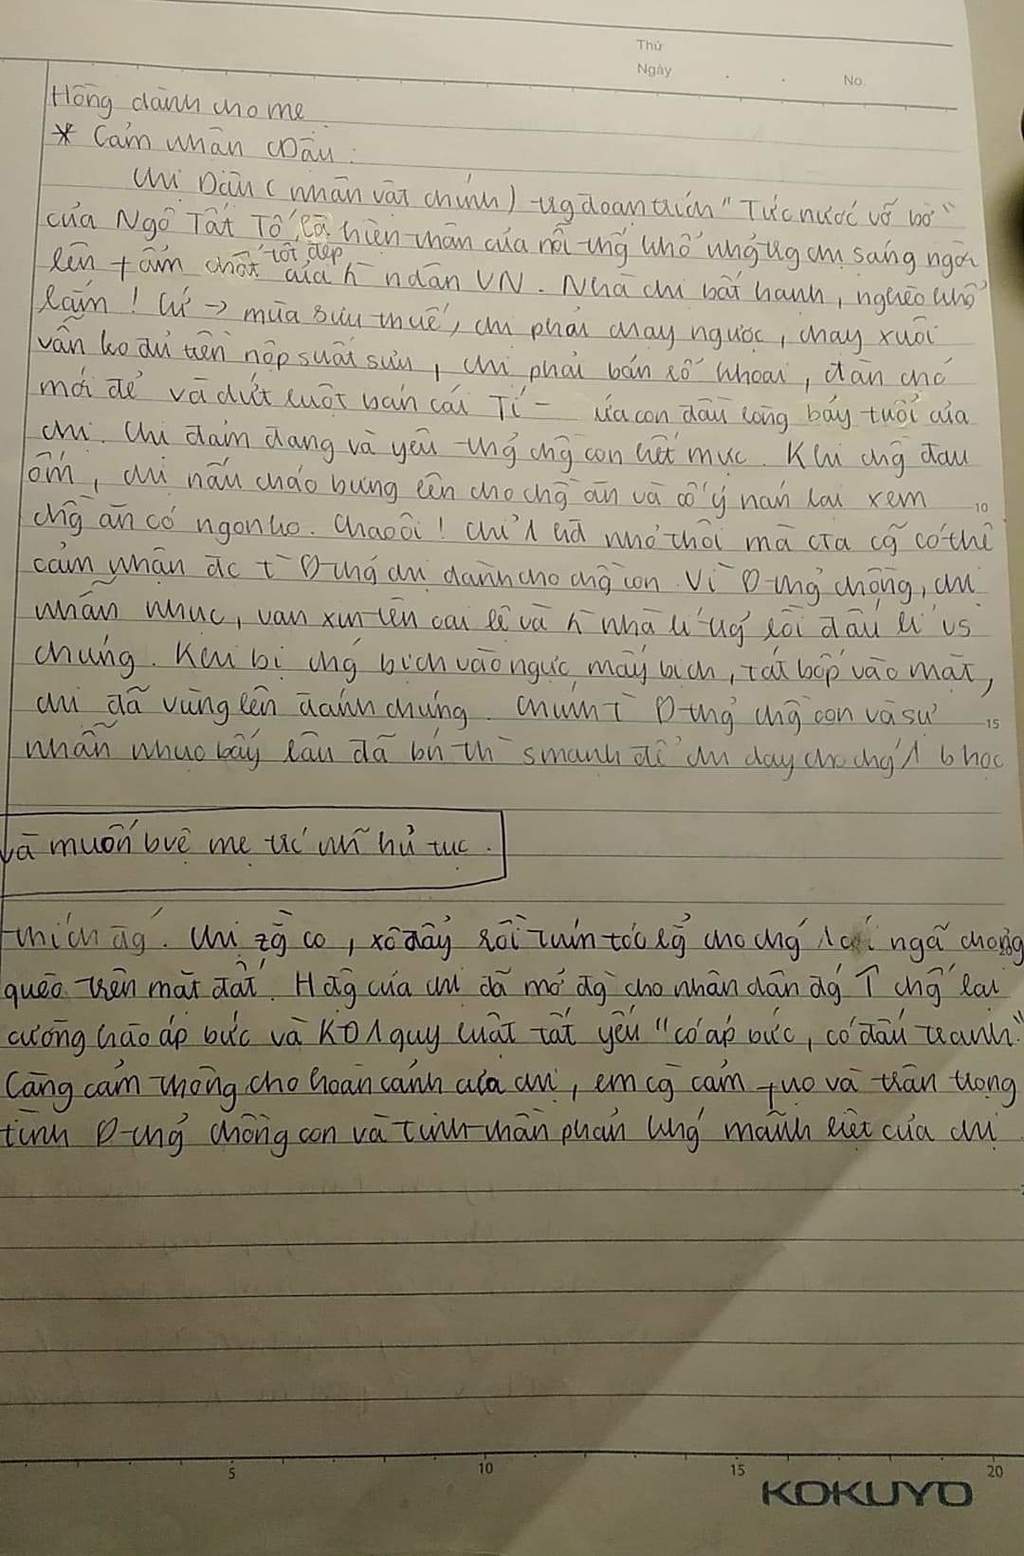 Thứ
Ngày . . No.
Hồng dành cho mẹ
* Cảm nhận CDậu :
Chị Dậu ( nhân vật chính ) trg đoạn trích " Tức nước vỡ bờ "
của Ngô Tất Tố là hiện thân của nỗi thg khổ nhg trg chị sáng ngời
tốt đẹp
lên + âm chất của h ndân VN . Nhà chị bất hạnh , nghèo khổ
lắm ! Cứ → mùa sưu thuế , chị phải chạy ngược , chạy xuôi
vẫn ko đủ tiền nộp suất sưu , chị phải bán rổ khoai , đàn chó
mới đẻ và dứt ruột bán cái Tí - đứa con đầu lòng bảy tuổi của
chị . Chị đảm đang và yêu thg chg con hết mực . Khi chg đau
ốm , chị nấu cháo bưng lên cho chg ăn và cố ý nán lại xem
10
chg ăn có ngon ko . Chao ôi ! Chỉ 1 nhỏ thôi mà cta cg có thể
cảm nhận đc t D thg chị dành cho chg con . Vì D thg chồng , chị
nhẫn nhục , van xin tên cai lệ và nhà lí trg rồi đấu lí vs
chúng . Khi bị chg bịch vào ngực mấy bịch , tát bốp vào mặt ,
chị đã vùng lên đánh chúng . Chính T D thg chg con và sự
15
nhẫn nhục bấy lâu đã bn th smạnh để chị dạy cho chg 1 b học
và muốn bvệ mẹ trc nh hủ tục .
thích đág . Chị zg co , xô đẩy rồi túm tóc lg cho chg 1 cái ngã chỏng
quèo trên mặt đất . H đg của chị đã mở đg cho nhân dân đg ↑ chg lại
cường hào áp bức và KĐ 1 quy luật tất yếu " có áp bức , có đấu tranh "
Càng cảm thông cho hoàn cảnh của chị , em cg cảm phục và trân trọng
tình D thg chồng con và tinh thần phản kháng mãnh liệt của chị
5 10 15 20
KOKUYO